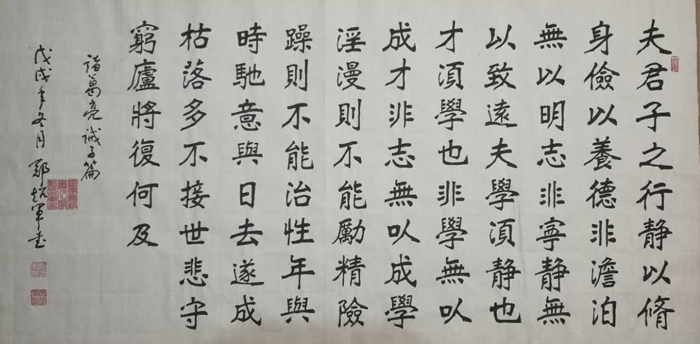 夫君子之行静以脩
身儉以養德非澹泊
無以明志非寧静無
以致遠夫學湏静也
才湏學也非學無以
成才非志無以成學
淫漫則不能勵精險
躁則不能治性年與
時馳意與日去遂成
枯落多不接世悲守
窮廬將復何及
諸葛亮誡子篇
戊戌年冬月鄭軍書